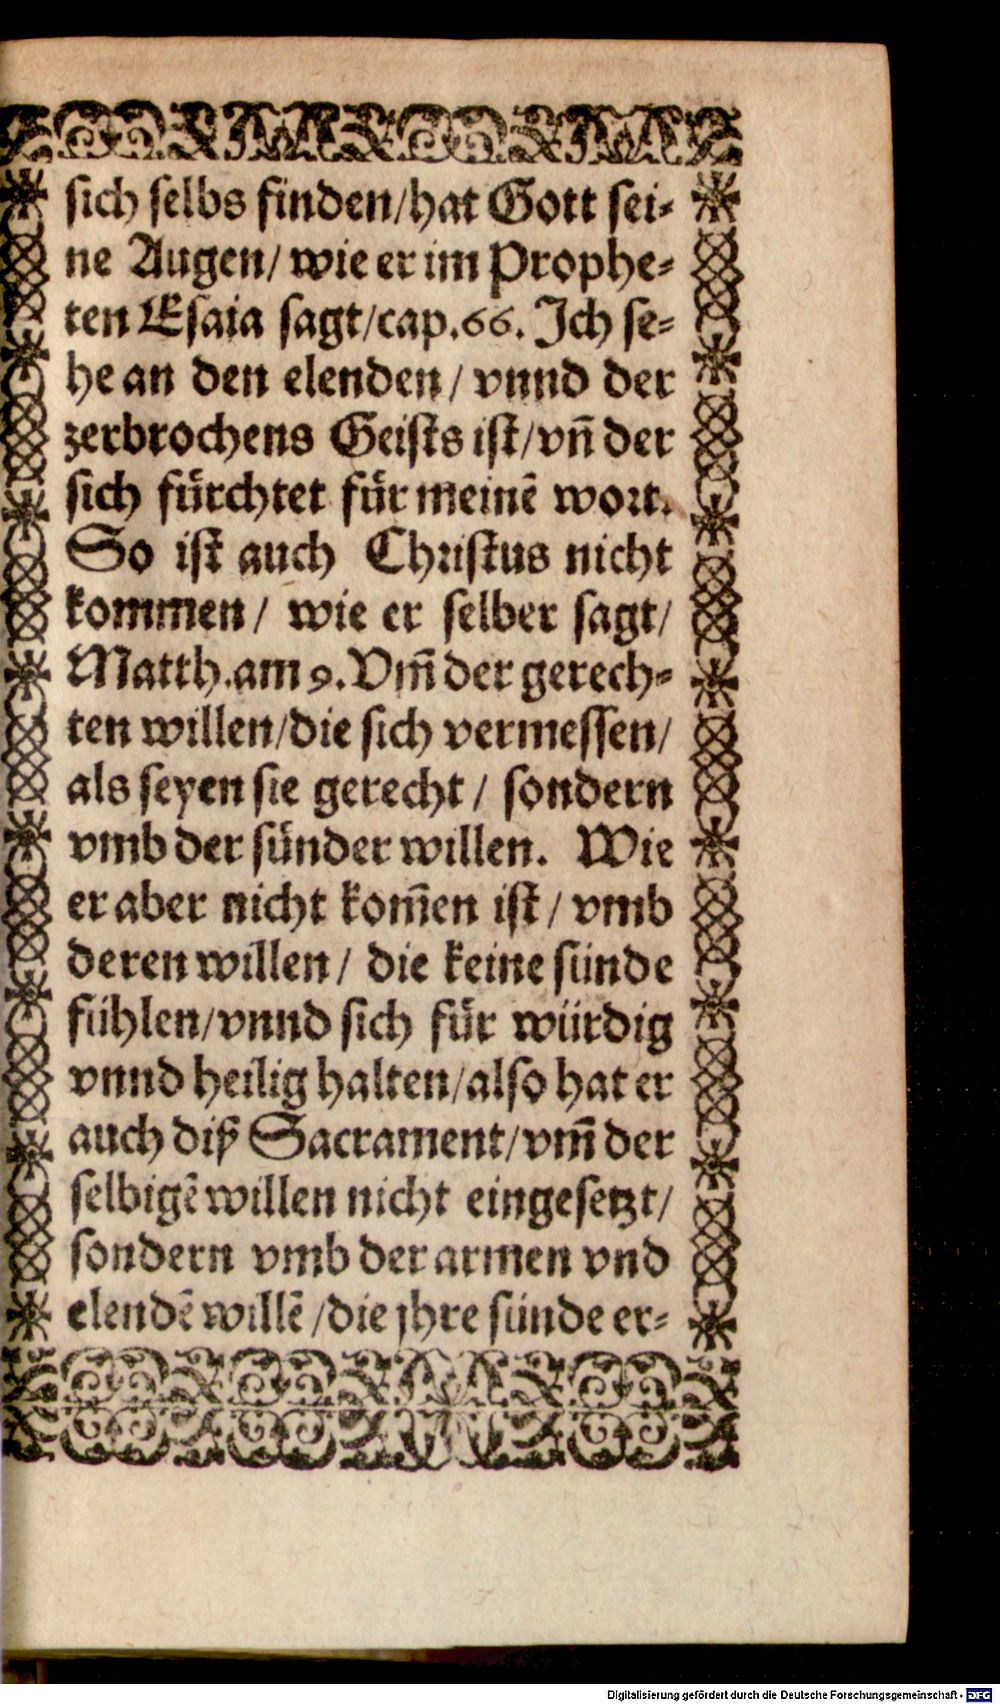 sich selbs finden/hat Gott sei-
ne Augen/ wie er im Prophe-
ten Esaia sagt/cap.66. Ich se-
he an den elenden/ vnnd der
zerbrochens Geists ist/vn̄ der
sich fuͤrchtet fuͤr meinē wort.
So ist auch Christus nicht
kommen/ wie er selber sagt/
Matth.am 9. Vm̄ der gerech-
ten willen/die sich vermessen/
als seyen sie gerecht/ sondern
vmb der suͤnder willen. Wie
er aber nicht kom̄en ist/ vmb
deren willen/ die keine sünde
fühlen/vnnd sich fuͤr würdig
vnnd heilig halten/also hat er
auch diß Sacrament/vm̄ der
selbigē willen nicht eingesetzt/
sondern vmb der armen vnd
elendē willē/die jhre sünde er-
Digitalisierung gefördert durch die Deutsche Forschungsgemeinschaft - DFG